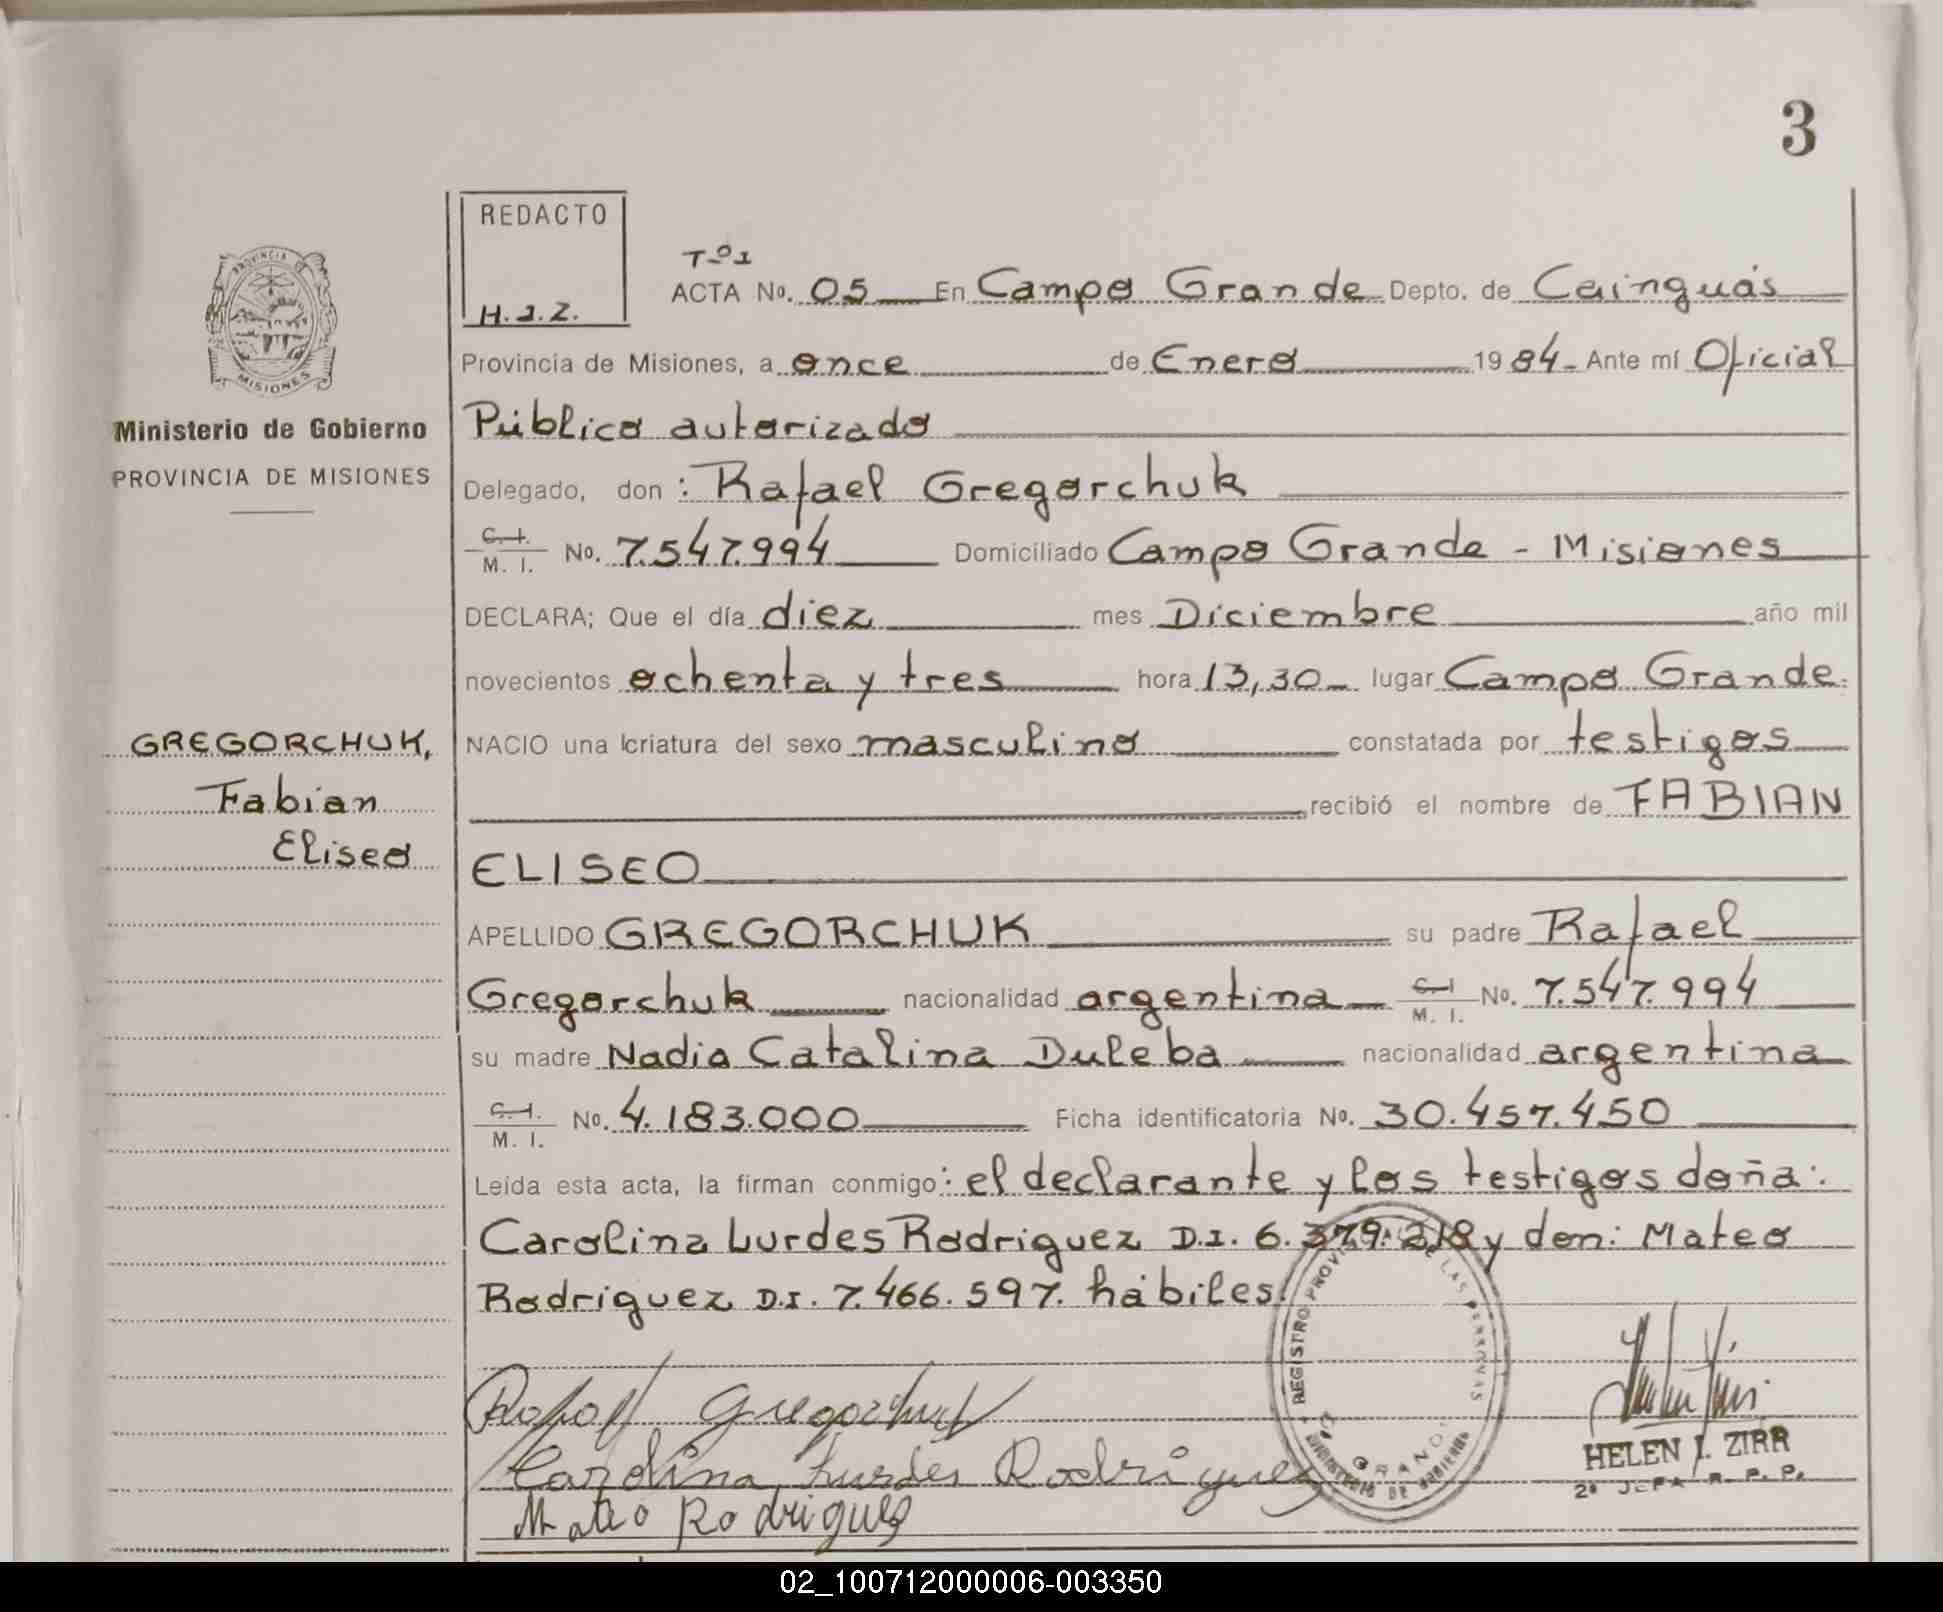 3
REDACTO
H.I.Z.
Tº1
ACTA No. 05 En Campo Grande Depto. de Cainguás
Provincia de Misiones, a once de Enero 1984- Ante mí Oficial
Público autorizado
Delegado, don : Rafael Gregorchuk
C. I. M. I. No. 7.547.994 Domiciliado Campo Grande - Misiones
DECLARA; Que el día diez mes Diciembre año mil
novecientos ochenta y tres hora 13,30- lugar Campo Grande.
NACIO una criatura del sexo masculino constatada por testigos
recibió el nombre de FABIAN
ELISEO
APELLIDO GREGORCHUK su padre Rafael
Gregorchuk nacionalidad argentina C. I. M. I. No. 7.547.994
su madre Nadia Catalina Duleba nacionalidad argentina
C. I. M. I. No. 4.183.000 Ficha identificatoria No. 30.457.450
Leída esta acta, la firman conmigo: el declarante y los testigos doña:
Carolina Lurdes Rodriguez D.I. 6.379.218 y don: Mateo
Rodriguez D.I. 7.466.597. hábiles.
PROVINCIA DE
MISIONES
Ministerio de Gobierno
PROVINCIA DE MISIONES
GREGORCHUK,
Fabian
Eliseo
Rafael Gregorchuk
Carolina Lurdes Rodriguez
Mateo Rodriguez
REGISTRO PROVINCIAL DE LAS PERSONAS
MINISTERIO DE GOBIERNO
HELEN I. ZIRR
2º JEFA R. P. P.
02_100712000006-003350